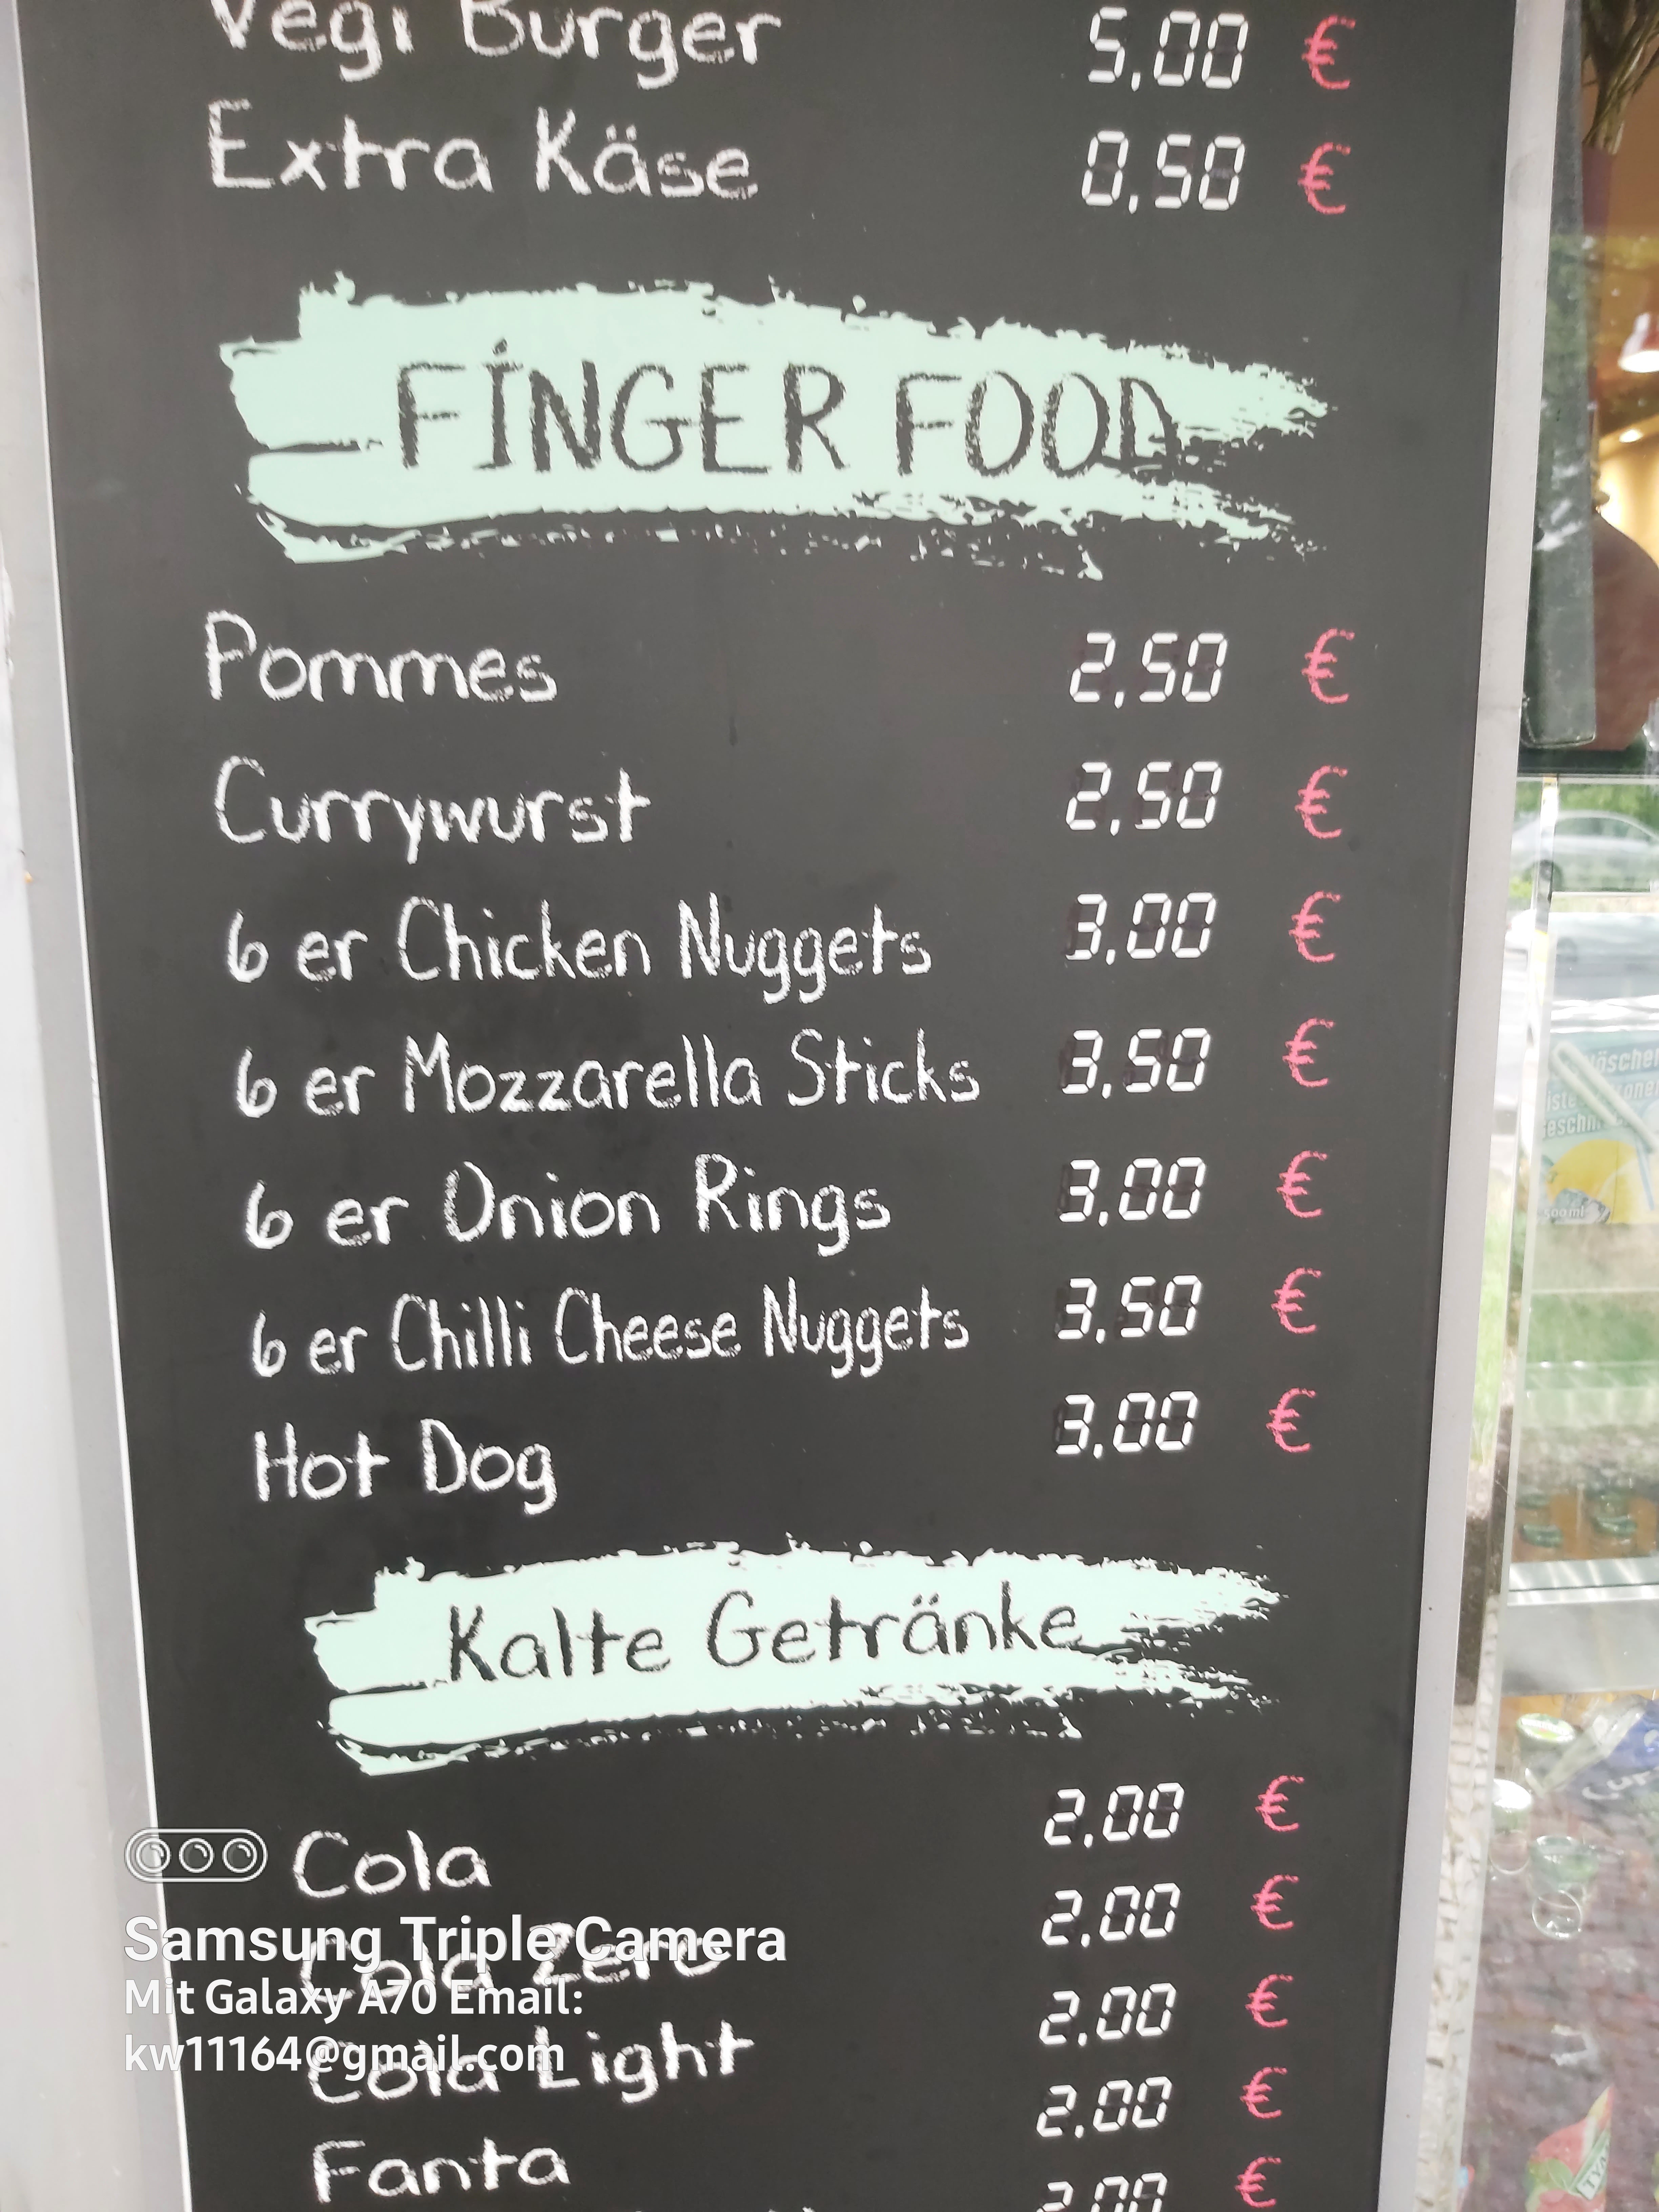 Vegi Burger 5,00 €
Extra Käse 0,50 €
FİNGER FOOD
Pommes 2,50 €
Currywurst 2,50 €
6 er Chicken Nuggets 3,00 €
6 er Mozzarella Sticks 3,50 €
6 er Onion Rings 3,00 €
6 er Chilli Cheese Nuggets 3,50 €
Hot Dog 3,00 €
Kalte Getränke
Cola 2,00 €
Cola Zero 2,00 €
Cola Light 2,00 €
Fanta 2,00 €
2,00 €
Samsung Triple Camera
Mit Galaxy A70 Email:
kw11164@gmail.com
500 ml